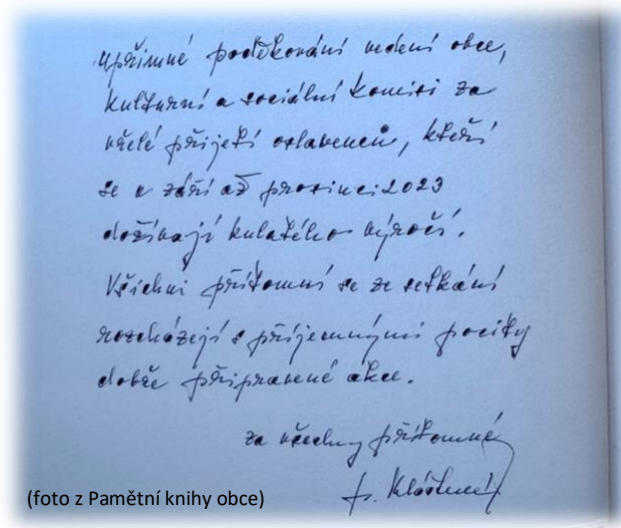 upřimné poděkování vedení obce,
kulturní a sociální komisi za
vřelé přijetí oslavenců, kteří
se v září až prosinci 2023
dožívají kulatého výročí.
Všichni přítomní se ze setkání
rozcházejí s příjemnými pocity
dobře připravené akce.
za všechny přítomné
(foto z Pamětní knihy obce)